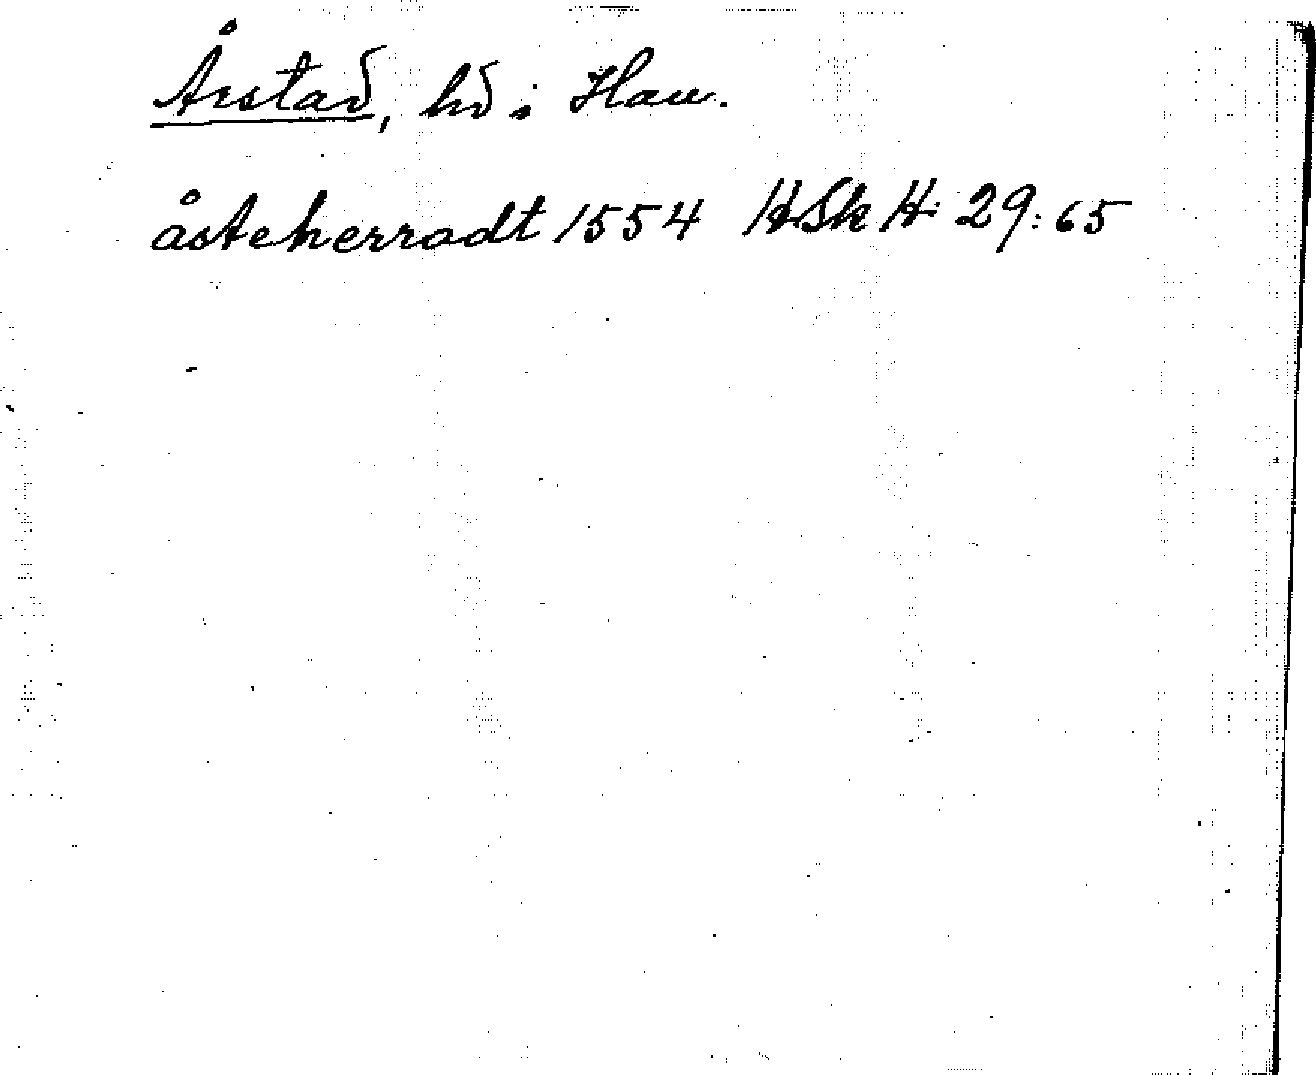 Årstad, hd i Hall.
åsteherradt 1554 HSkH 29:65